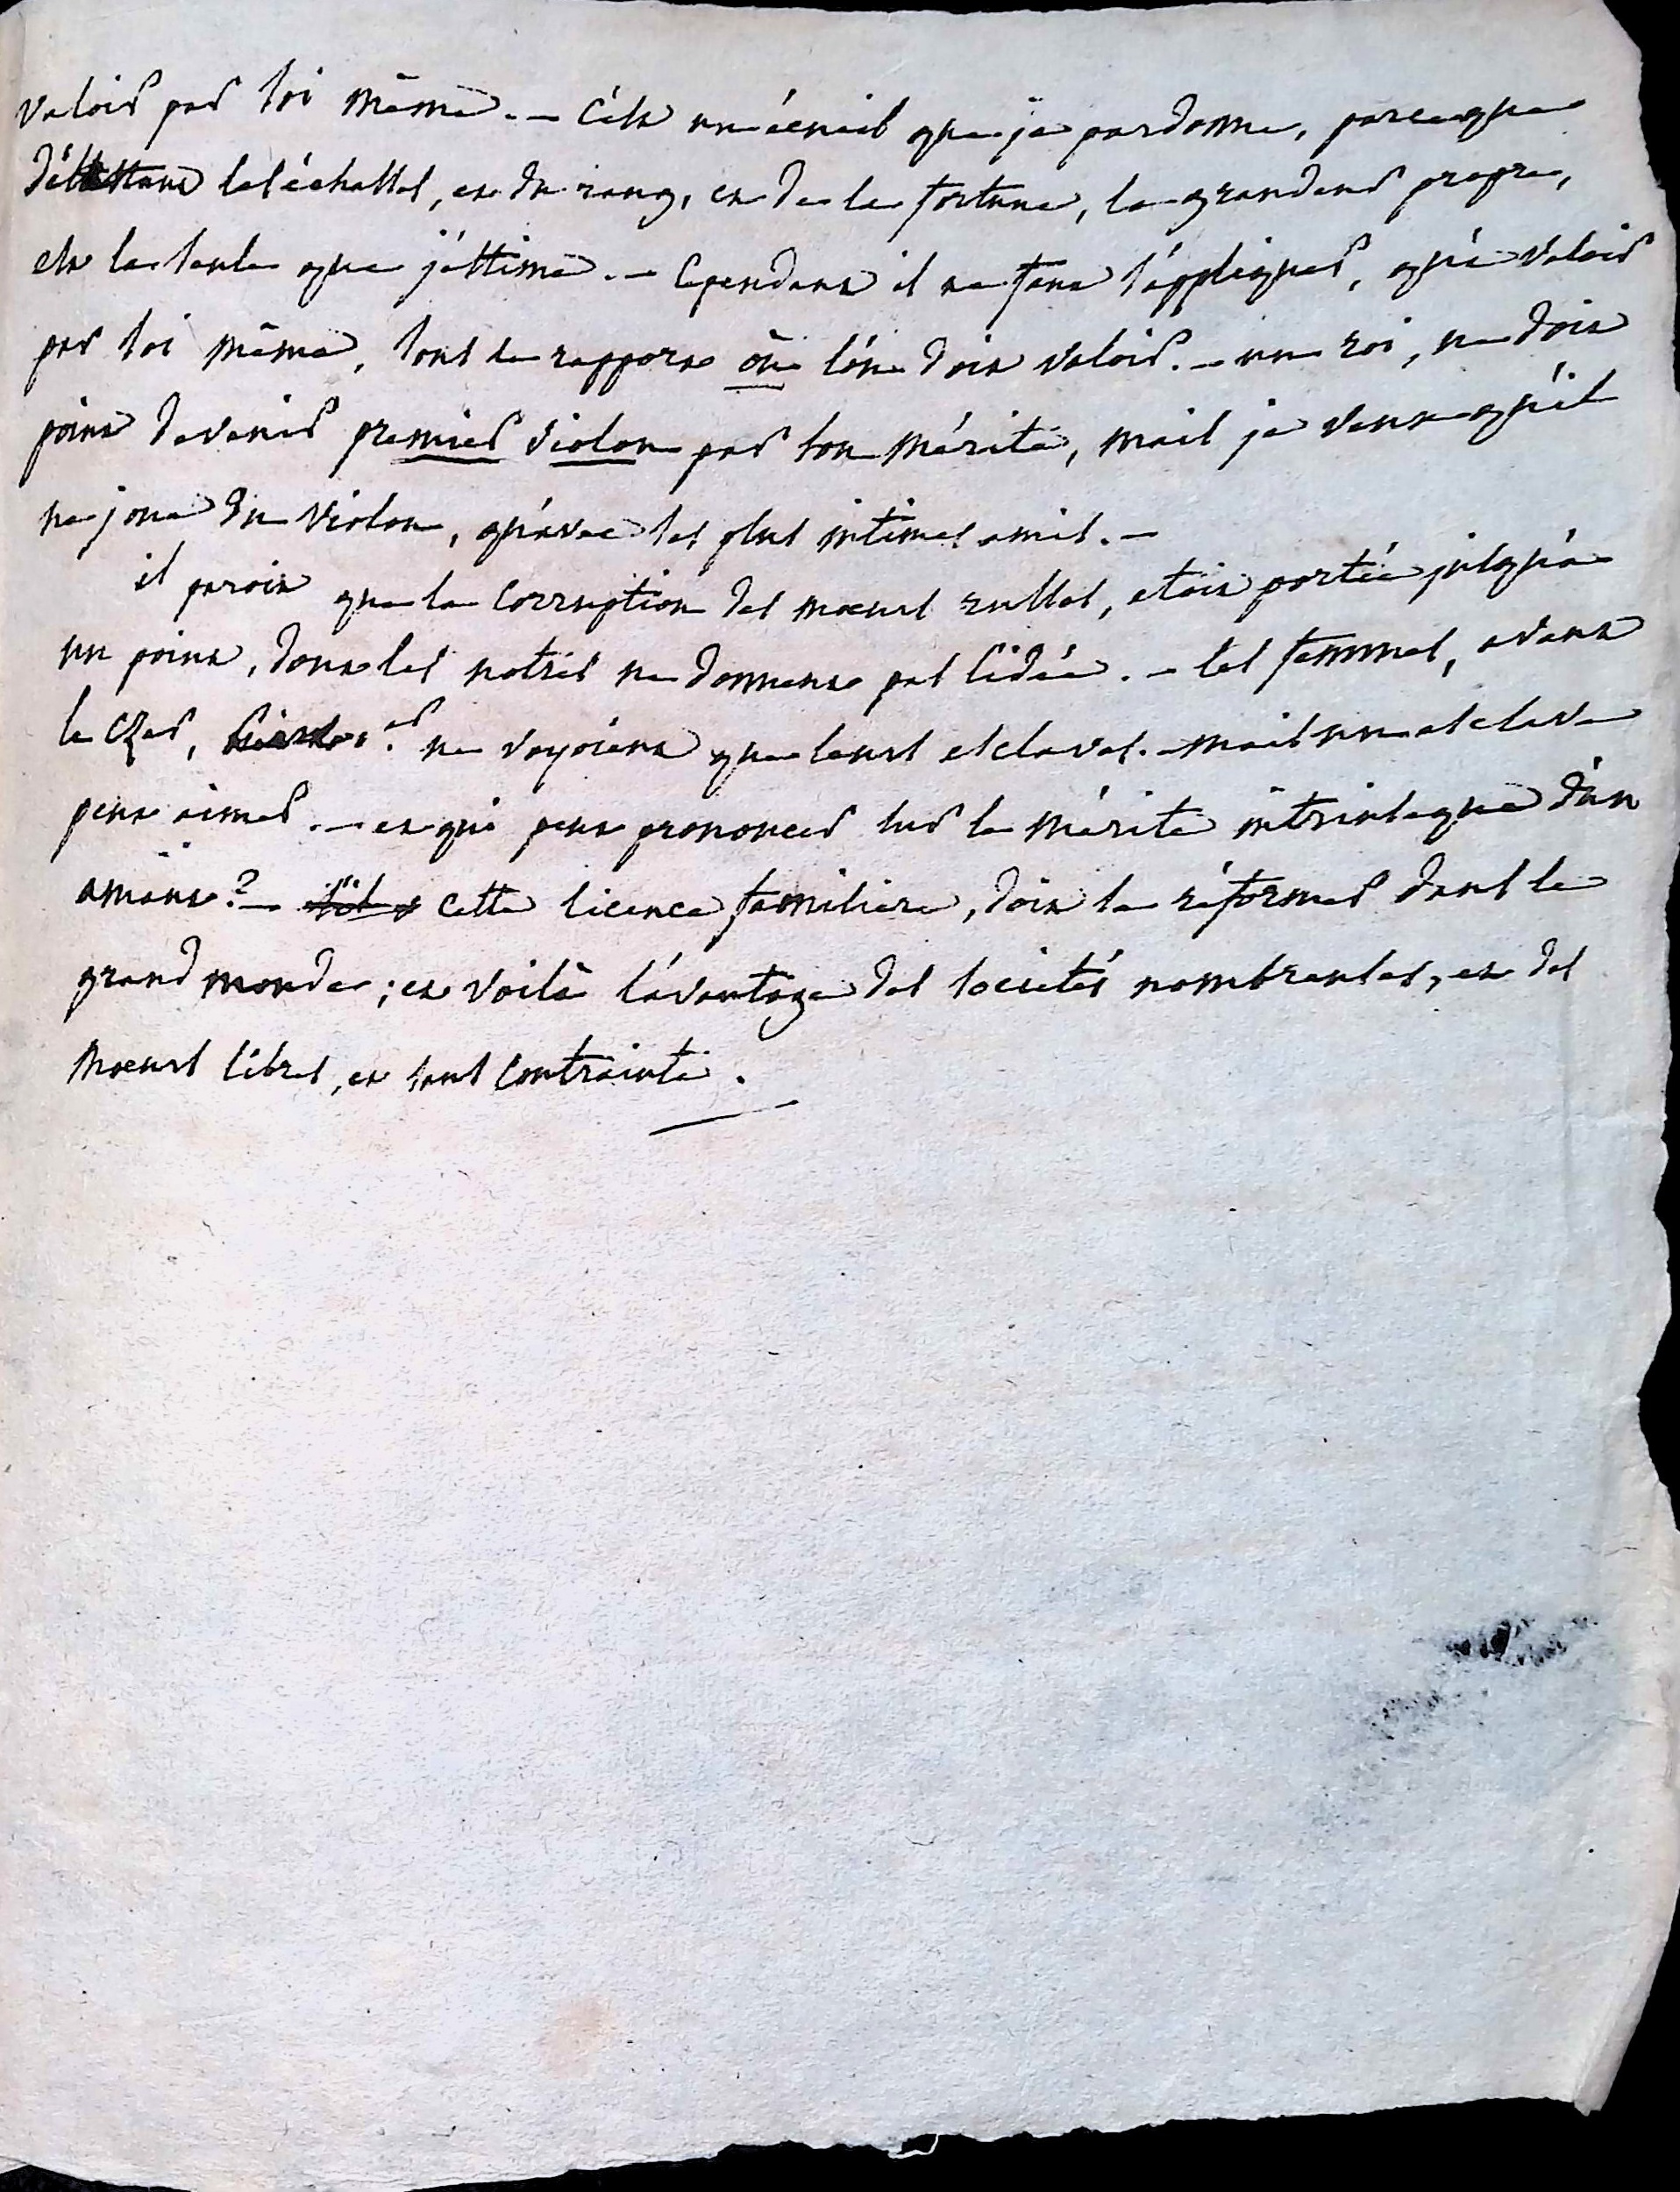 valoir par soi même. – C'est un écueil que je pardonne, parceque
détestant les échasses, et du rang, et de la fortune, la grandeur propre,
est la seule que j'estime. – Cependant il ne faut s'appliquer, qu'à valoir
par soi même, sous le rapport où l'on doit valoir. – un roi, ne doit
point devenir premier violon par son mérite, mais je veux qu'il
ne joue du violon, qu'avec ses plus intimes amis. –
il paroit que la corruption des mœurs russes, etoit portée jusqu'à
un point, dont les notres ne donnent pas l'idée. – les femmes, avant
le czar, ne voyoient que leurs esclaves. – mais un esclave
peut aimer. – et qui peut prononcer sur le mérite intrinseque d'un
amant? – cette licence familiere, doit se réformer dans le
grand monde; et voilà l'avantage des societés nombreuses, et des
mœurs libres, et sans contrainte.